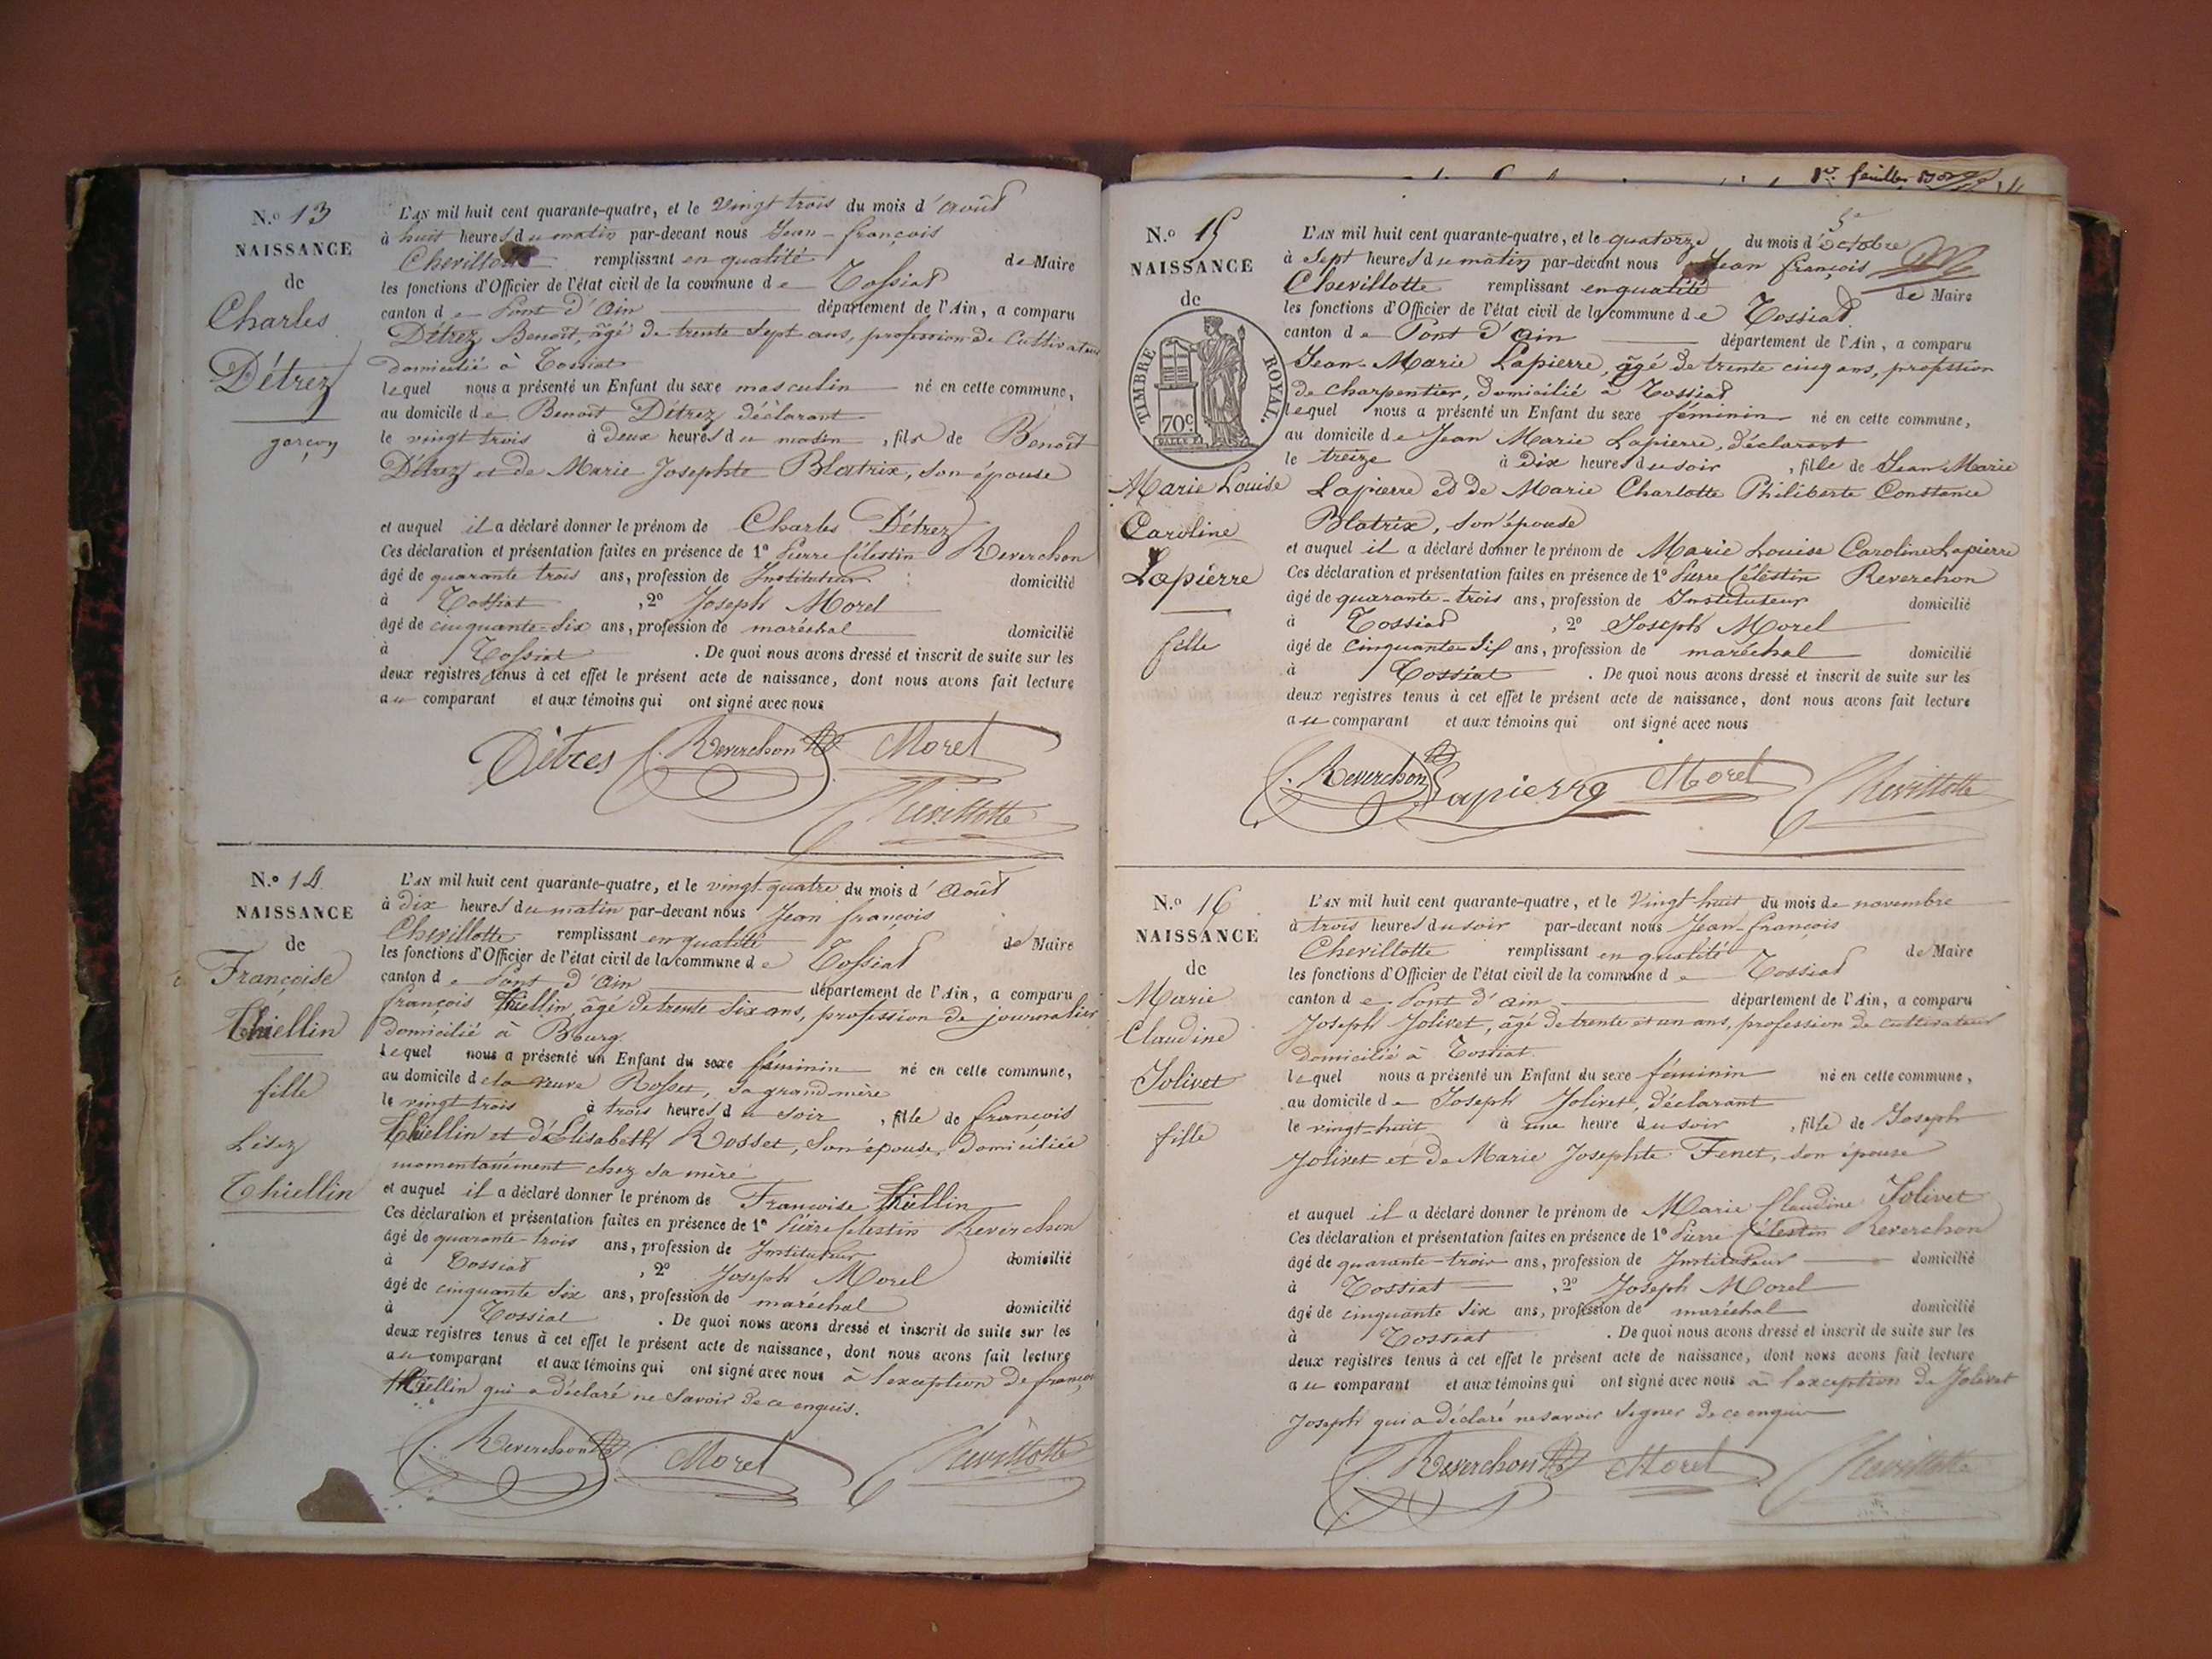 N.o 13
NAISSANCE
de
Charles
Détrez
garçon
L'AN mil huit cent quarante-quatre, et le vingt trois du mois d'Août
à huit heures du matin par-devant nous Jean-françois
Chevillotte remplissant en qualité de Maire
les fonctions d'Officier de l'état civil de la commune de Tossiat
canton de Pont d'ain département de l'Ain, a comparu
Détrez Benoît, âgé de trente sept ans, profession de Cultivateur
domicilié à Tossiat
lequel nous a présenté un Enfant du sexe masculin né en cette commune,
au domicile de Benoît Détrez déclarant
le vingt trois à deux heures du matin, fils de Benoît
Détrez et de Marie Josephte Blatrix, son épouse
et auquel il a déclaré donner le prénom de Charles Détrez
Ces déclaration et présentation faites en présence de 1o Pierre Célestin Reverchon
âgé de quarante trois ans, profession de Instituteur domicilié
à Tossiat, 2o Joseph Morel
âgé de cinquante-six ans, profession de maréchal domicilié
à Tossiat. De quoi nous avons dressé et inscrit de suite sur les
deux registres tenus à cet effet le présent acte de naissance, dont nous avons fait lecture
au comparant et aux témoins qui ont signé avec nous
Détres Reverchon Morel
Chevillotte
N.o 14
NAISSANCE
de
Françoise
Thiellin
fille
Lisez
Thiellin
L'AN mil huit cent quarante-quatre, et le vingt-quatre du mois d'Août
à dix heures du matin par-devant nous Jean françois
Chevillotte remplissant en qualité de Maire
les fonctions d'Officier de l'état civil de la commune de Tossiat
canton de Pont d'ain département de l'Ain, a comparu
françois Thiellin, âgé de trente six ans, profession de journalier
domicilié à Bourg
lequel nous a présenté un Enfant du sexe féminin né en cette commune,
au domicile de la veuve Rosset, sa grand mère
le vingt-trois à trois heures du soir, fille de françois
Thiellin et d'Elisabeth Rosset, son épouse, domiciliée
momentanément chez sa mère
et auquel il a déclaré donner le prénom de Françoise Thiellin
Ces déclaration et présentation faites en présence de 1o Pierre Célestin Reverchon
âgé de quarante-trois ans, profession de Instituteur domicilié
à Tossiat, 2o Joseph Morel
âgé de cinquante six ans, profession de maréchal domicilié
à Tossiat. De quoi nous avons dressé et inscrit de suite sur les
deux registres tenus à cet effet le présent acte de naissance, dont nous avons fait lecture
au comparant et aux témoins qui ont signé avec nous à l'exception de françois
Thiellin qui a déclaré ne savoir de ce enquis.
Reverchon Morel Chevillotte
feuille
N.o 15
NAISSANCE
de
TIMBRE ROYAL.
70c
Marie Louise
Caroline
Lapierre
fille
L'AN mil huit cent quarante-quatre, et le quatorze du mois d'Octobre
à sept heures du matin par-devant nous Jean françois
Chevillotte remplissant en qualité de Maire
les fonctions d'Officier de l'état civil de la commune de Tossiat
canton de Pont d'ain département de l'Ain, a comparu
Jean-Marie Lapierre, âgé de trente cinq ans, profession
de charpentier, domicilié à Tossiat
lequel nous a présenté un Enfant du sexe féminin né en cette commune,
au domicile de Jean Marie Lapierre, déclarant
le treize à dix heures du soir, fille de Jean Marie
Lapierre et de Marie Charlotte Philiberte Constance
Blatrix, son épouse
et auquel il a déclaré donner le prénom de Marie Louise Caroline Lapierre
Ces déclaration et présentation faites en présence de 1o Pierre Célestin Reverchon
âgé de quarante-trois ans, profession de Instituteur domicilié
à Tossiat, 2o Joseph Morel
âgé de cinquante-six ans, profession de maréchal domicilié
à Tossiat. De quoi nous avons dressé et inscrit de suite sur les
deux registres tenus à cet effet le présent acte de naissance, dont nous avons fait lecture
au comparant et aux témoins qui ont signé avec nous
Reverchon Lapierre Morel Chevillotte
N.o 16
NAISSANCE
de
Marie
Claudine
Jolivet
fille
L'AN mil huit cent quarante-quatre, et le Vingt-huit du mois de novembre
à trois heures du soir par-devant nous Jean-françois
Chevillotte remplissant en qualité de Maire
les fonctions d'Officier de l'état civil de la commune de Tossiat
canton de Pont d'ain département de l'Ain, a comparu
Joseph Jolivet, âgé de trente et un ans, profession de cultivateur
domicilié à Tossiat.
lequel nous a présenté un Enfant du sexe féminin né en cette commune,
au domicile de Joseph Jolivet, déclarant
le vingt-huit à une heure du soir, fille de Joseph
Jolivet et de Marie Josephte Fenet, son épouse
et auquel il a déclaré donner le prénom de Marie Claudine Jolivet
Ces déclaration et présentation faites en présence de 1o Pierre Célestin Reverchon
âgé de quarante-trois ans, profession de Instituteur domicilié
à Tossiat, 2o Joseph Morel
âgé de cinquante six ans, profession de maréchal domicilié
à Tossiat. De quoi nous avons dressé et inscrit de suite sur les
deux registres tenus à cet effet le présent acte de naissance, dont nous avons fait lecture
au comparant et aux témoins qui ont signé avec nous à l'exception de Jolivet
Joseph qui a déclaré ne savoir signer de ce enquis
Reverchon Morel Chevillotte